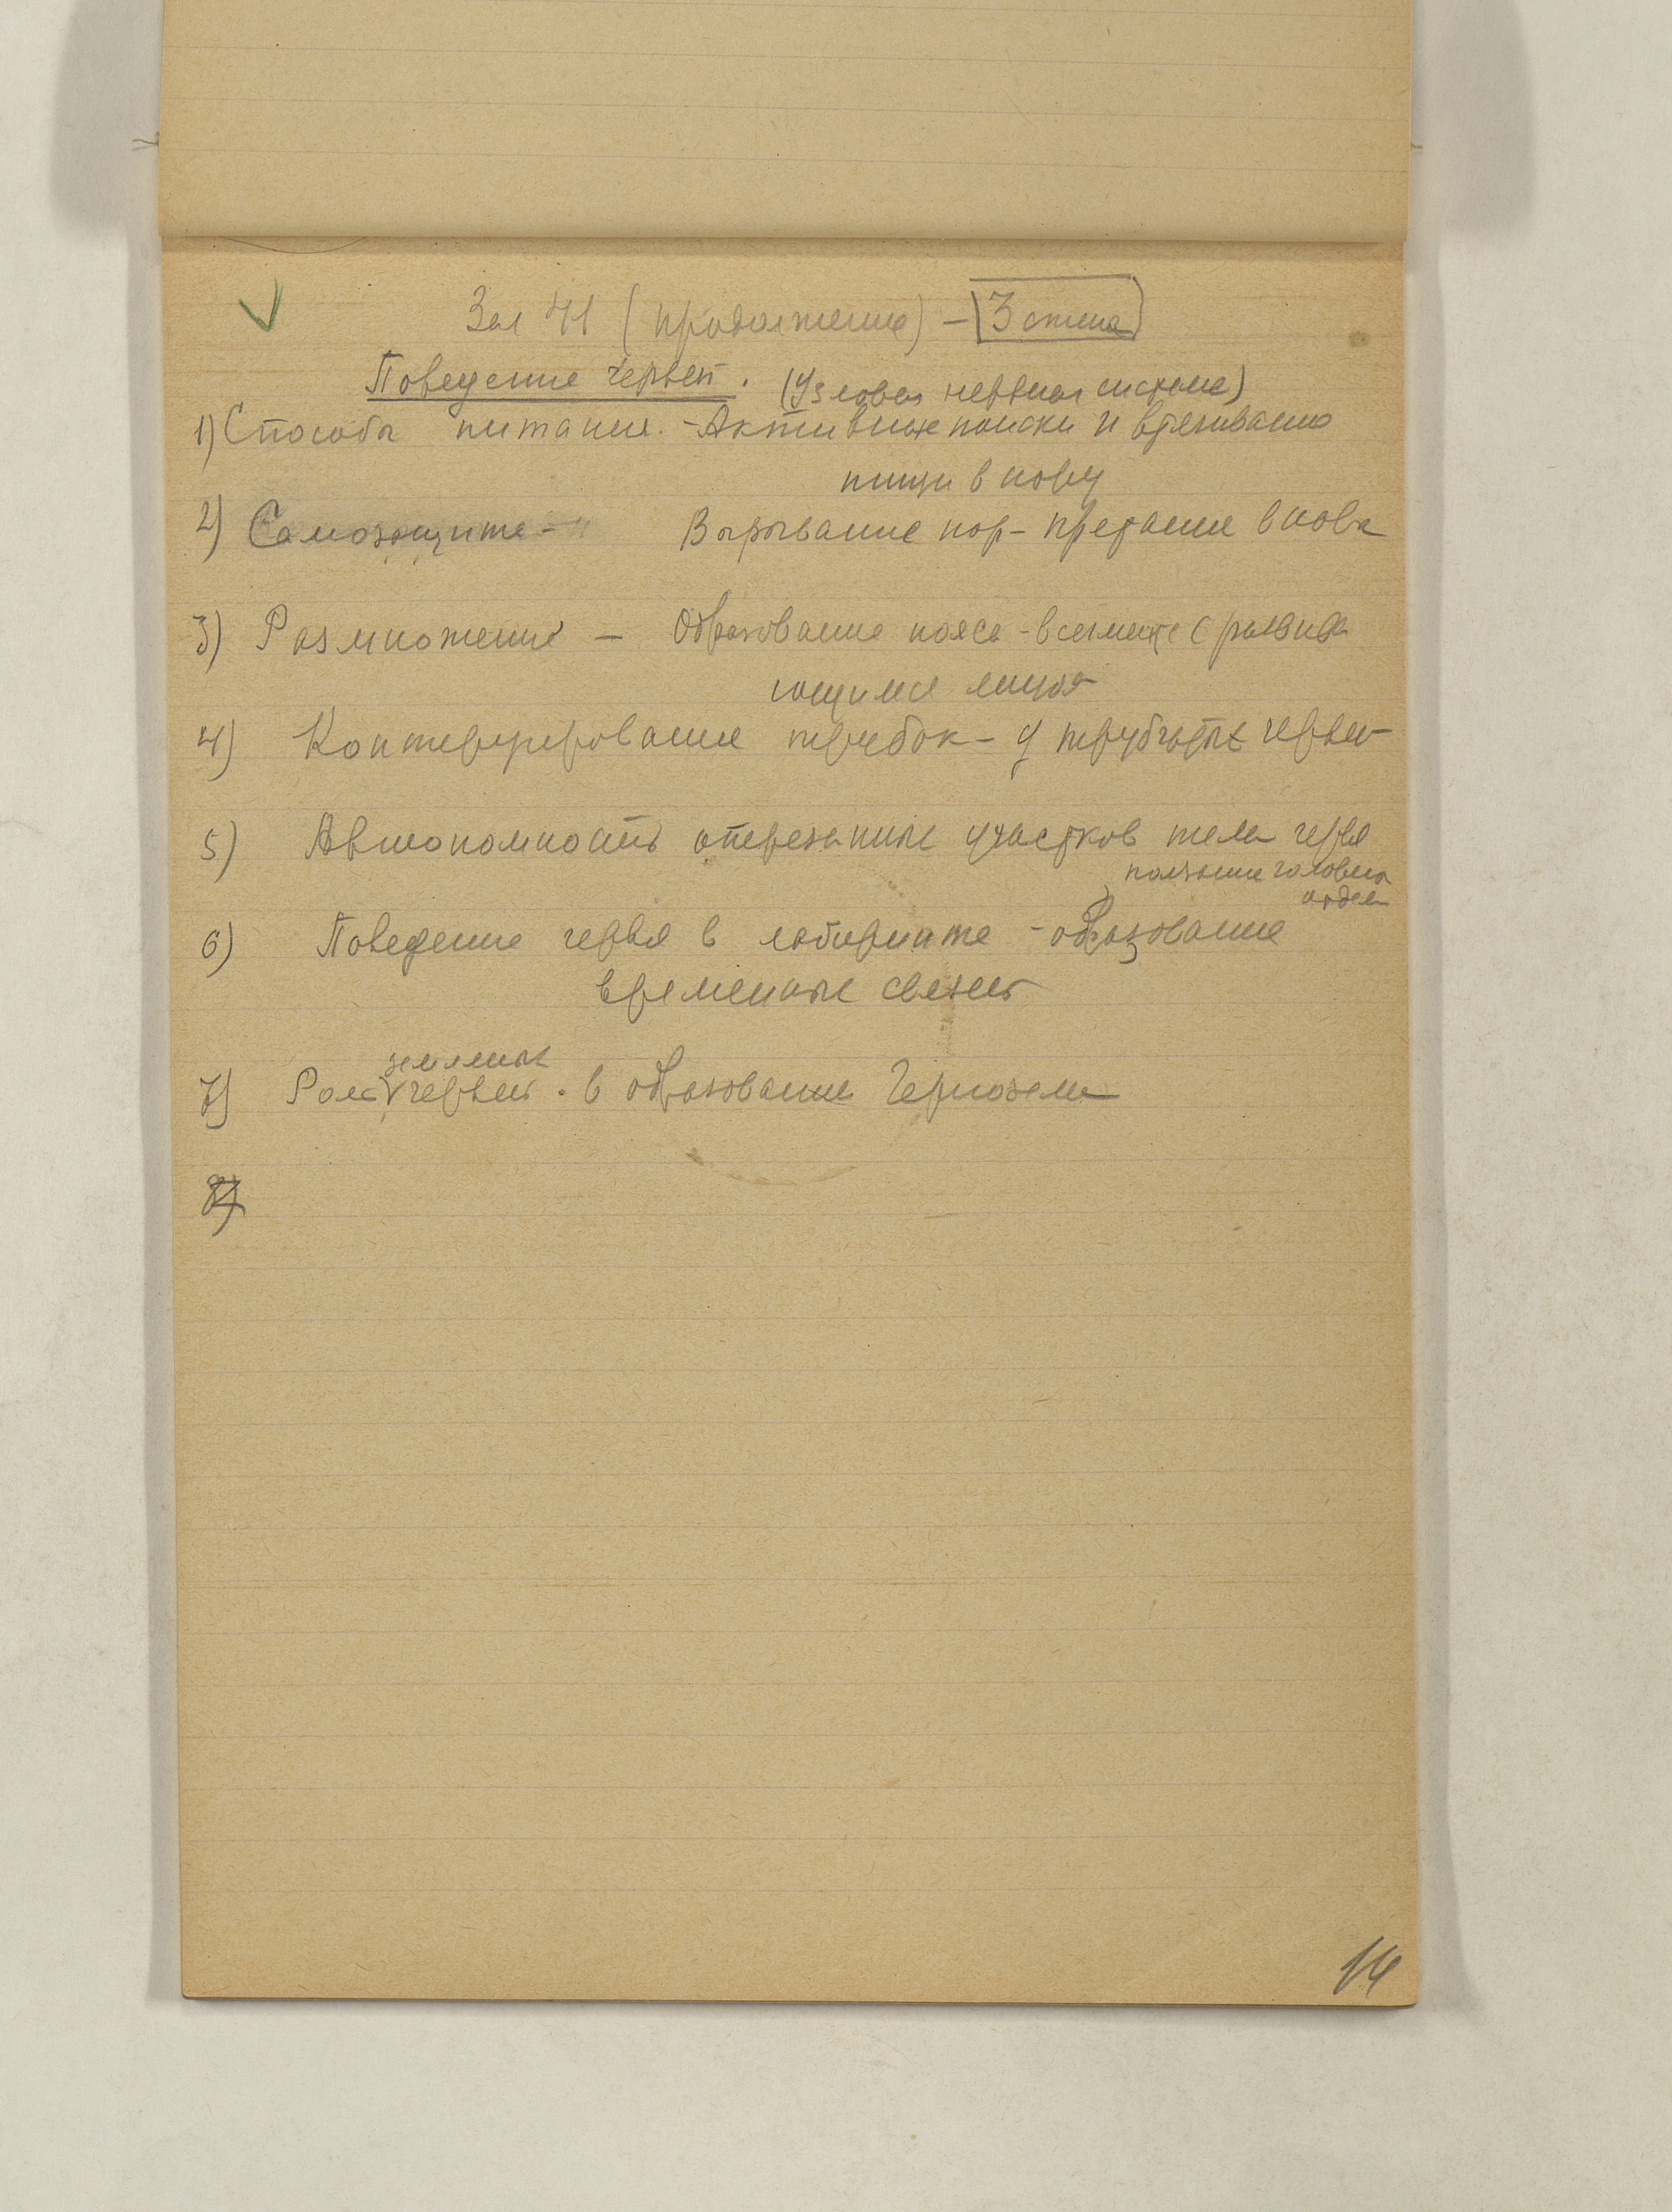 Зал 41 (продолжение) – 3 стена
Поведение червей. (Узловая нервная система)
1) Способы питания. – Активные поиски и втягивание
пищи в нору
2) Самозащита – Вырывание нор – прятание в
3) Размножение – Образование пояса – с развива
ющимися
4) Конструирование трубок – у трубчатых червей
5) Автономность отрезанных участков тела червя
ползание головного
отдела
6) Поведение червя в лабиринте – образование
временных связей
земляных
7) Роль червей в образовании Чернозема
8)
14